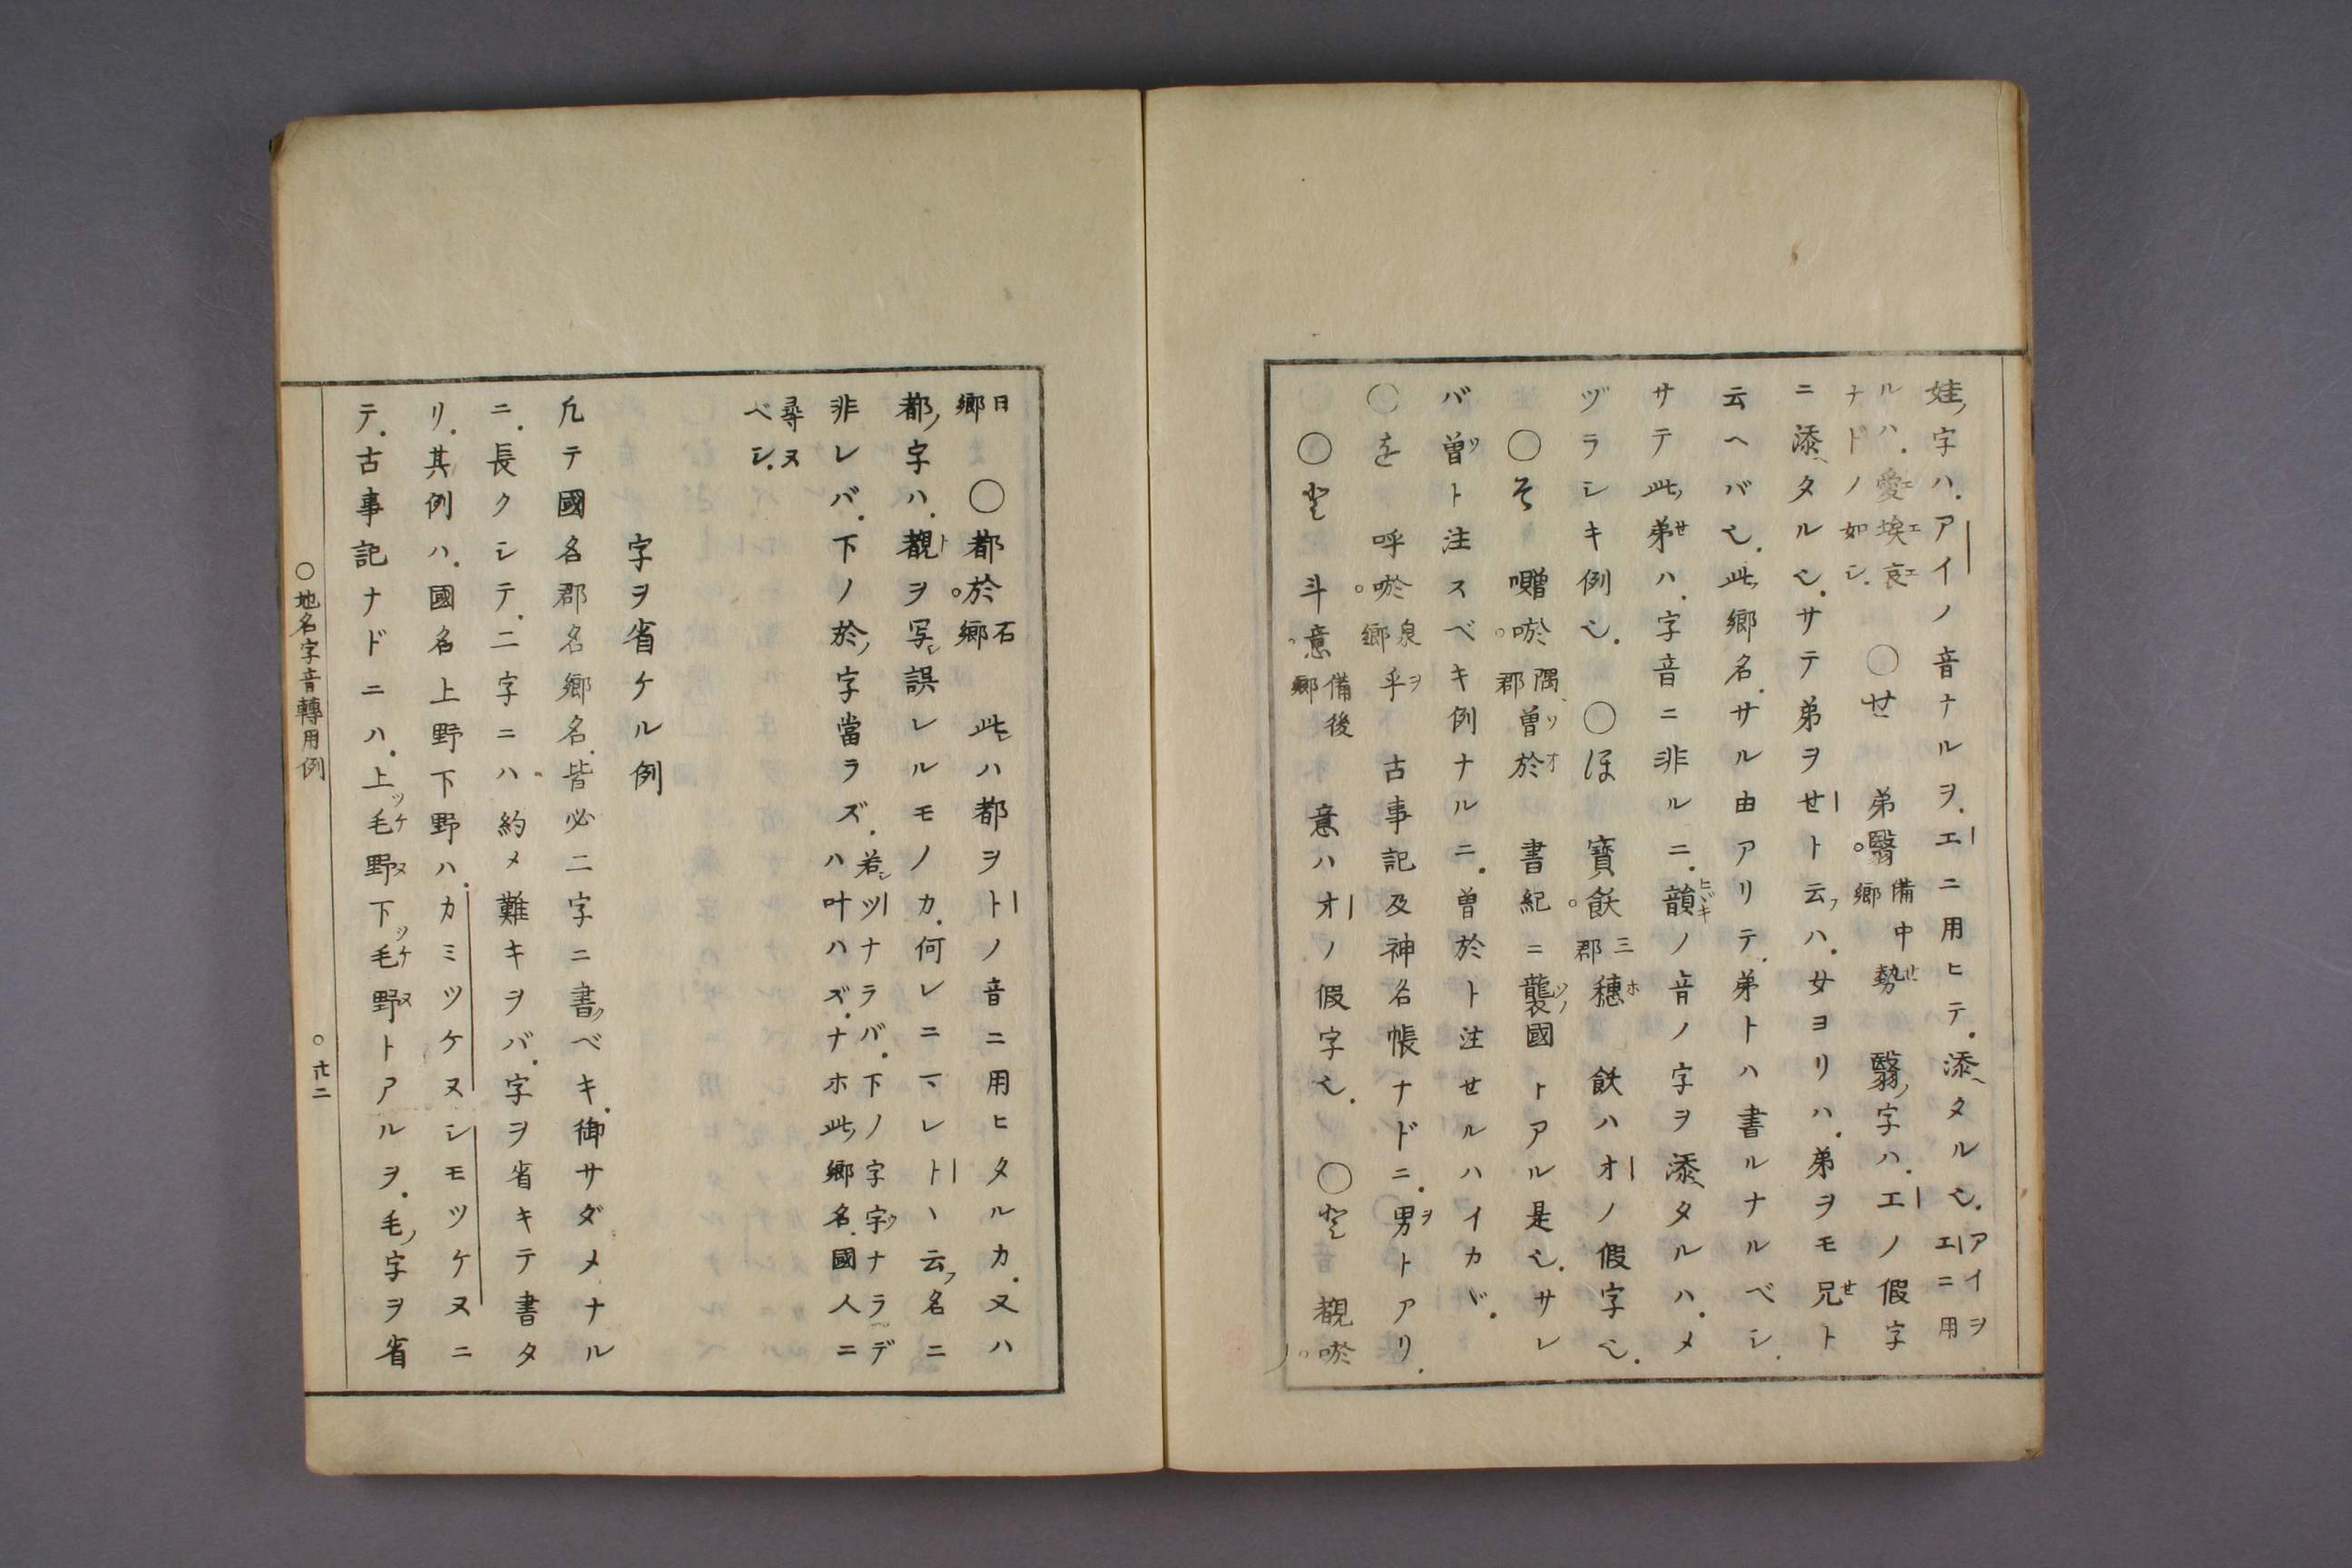 娃ノ字ハ．アイノ音ナルヲ．エニ用ヒテ．添ヘタル也．アイヲエニ用
ルハ．愛埃哀ナドノ如シ．　〇せ　弟翳備中郷勢　翳ノ字ハ．エノ假字
ニ添ヘタル也．サテ弟ヲせト云フハ．女ヨリハ．弟ヲモ兄ト
云ヘバ也．此ノ郷名．サル由アリテ．弟トハ書ルナルベシ．
サテ此ノ弟ハ．字音ニ非ルニ．韻ノ音ノ字ヲ添ヘタルハ．メ
ヅラシキ例也．　〇ほ　寶飫三郡穗　飫ハオノ假字也．
〇そ　囎唹隅郡曽於　書紀ニ襲國トアル是也．サレ
バ曽ト注スベキ例ナルニ．曽於ト注せルハイカヾ．
〇を　呼唹泉郷乎　古事記及神名帳ナドニ．男トアリ．
〇と　斗意備後郷　意ハオノ假字也．　〇と　覩唹
日郷　〇都於石郷　此ハ都ヲトノ音ニ用ヒタルカ．又ハ
都ノ字ハ．覩ヲ写シ誤レルモノカ．何レニマレトヽ云フ名ニ
非レバ．下ノ於ノ字當ラズ．若シツナラバ．下ノ字字ナラデハ叶ハズ．ナホ此ノ郷名．國人ニ
尋ヌベシ．
字ヲ省ケル例
凡テ國名郡名郷名．皆必二字ニ書クベキ．御サダメナル
ニ．長クシテ．二字ニハ約メ難キヲバ．字ヲ省キテ書タ
リ．其例ハ．國名上野下野ハ．カミツケヌシモツケヌニ
テ．古事記ナドニハ．上ツ毛野下ツ毛野トアルヲ．毛ノ字ヲ省
〇地名字音轉用例　〇卅二